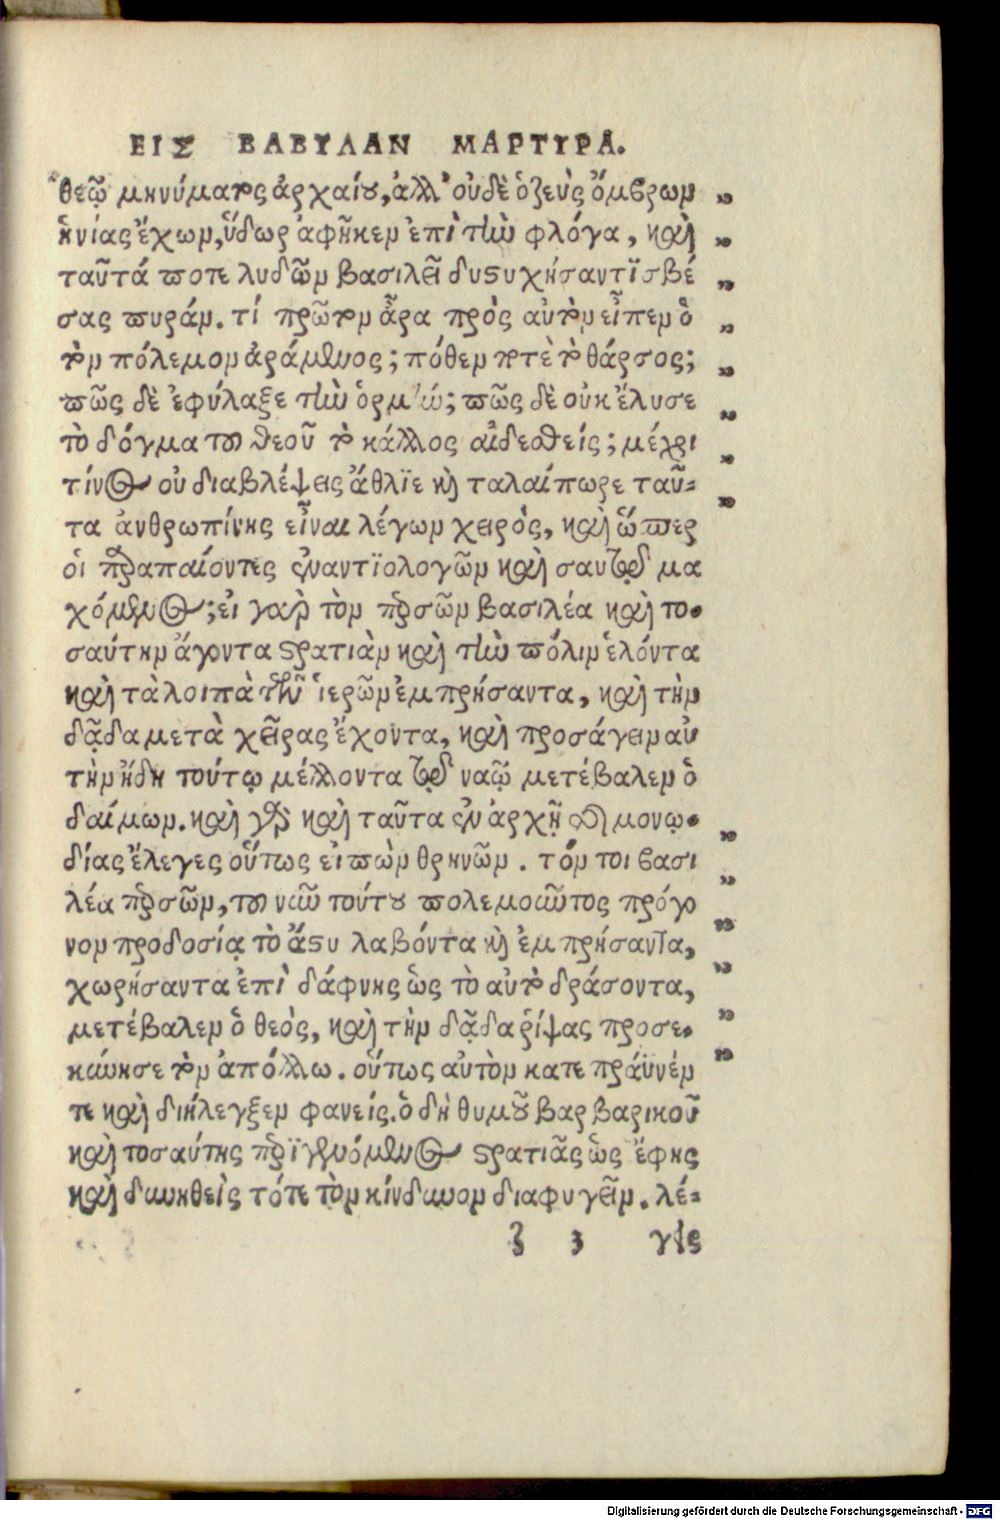 ΕΙΣ ΒΑΒΥΛΑΝ ΜΑΡΤΥΡΑ.
θεῷ μηνύματος ἀρχαίου, ἀλλ' οὐδὲ ὁ ζεὺς ὄμβρων „
ἡνίας ἔχων, ὕδωρ ἀφῆκεν ἐπὶ τὴν φλόγα, καὶ „
ταῦτά ποτε λυδῶν βασιλεῖ δυστυχήσαντϊ σβέ „
σας πυράν. τί πρῶτον ἆρα πρὸς αὐτὸν εἶπεν ὁ „
τὸν πόλεμον ἀράμενος; πόθεν ποτὲ τὸ θάρσος; „
πῶς δὲ ἐφύλαξε τὴν ὁρμήν; πῶς δὲ οὐκ ἔλυσε „
τὸ δόγμα τοῦ θεοῦ τὸ κάλλος αἰδεσθείς; μέχρι „
τίνος οὐ διαβλέψεις ἄθλϊε καὶ ταλαίπωρε ταῦ- „
τα ἀνθρωπίνης εἶναι λέγων χειρὸς, καὶ ὥσπερ
οἱ παραπαίοντες ἐναντϊολογῶν καὶ σαυτῷ μα
χόμενος; εἰ γὰρ τὸν περσῶν βασιλέα καὶ το-
σαύτην ἄγοντα στρατιὰν καὶ τὴν πόλιν ἑλόντα
καὶ τὰ λοιπὰ τῶν ἱερῶν ἐμπρήσαντα, καὶ τὴν
δᾷδα μετὰ χεῖρας ἔχοντα, καὶ προσάγειν αὐ
τὴν ἤδη τούτῳ μέλλοντα τῷ ναῷ μετέβαλεν ὁ
δαίμων. καὶ γὰρ καὶ ταῦτα ἐν ἀρχῇ τῆς μονῳ-
δίας ἔλεγες οὕτως εἰπὼν θρηνῶν. τόν τοι βασι „
λέα περσῶν, τοῦ νῦν τούτου πολεμοῦντος πρόγο „
νον προδοσίᾳ τὸ ἄστυ λαβόντα καὶ ἐμπρήσαντα, „
χωρήσαντα ἐπὶ δάφνης ὡς τὸ αὐτὸ δράσοντα, „
μετέβαλεν ὁ θεὸς, καὶ τὴν δᾷδα ῥίψας προσε- „
κύνησε τὸν ἀπόλλω. οὕτως αὐτὸν κατεπράϋνέν „
τε καὶ διήλεγξεν φανείς. ὁ δὴ θυμοῦ βαρβαρικοῦ
καὶ τοσαύτης περϊγενόμενος στρατιᾶς ὡς ἔφης
καὶ δυνηθεὶς τότε τὸν κίνδυνον διαφυγεῖν. λέ-
ζ 3 γεις
Digitalisierung gefördert durch die Deutsche Forschungsgemeinschaft - DFG